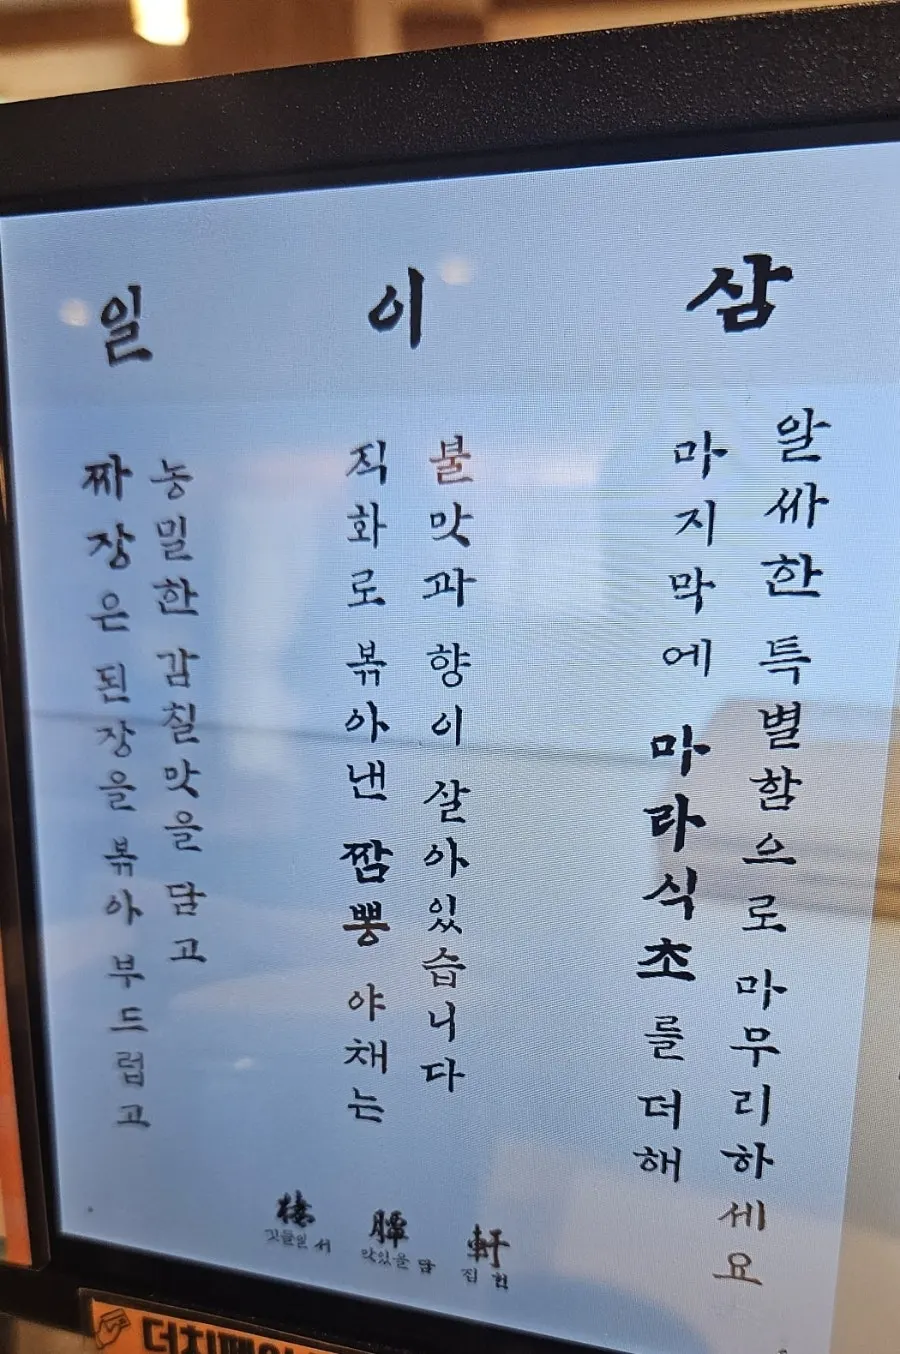 일
짜장은 된장을 볶아 부드럽고
농밀한 감칠맛을 담고
이
직화로 볶아낸 짬뽕 야채는
불맛과 향이 살아있습니다
삼
마지막에 마라식초를 더해
알싸한 특별함으로 마무리하세요
棲
깃들일 서
맛있을 담
軒
집 헌